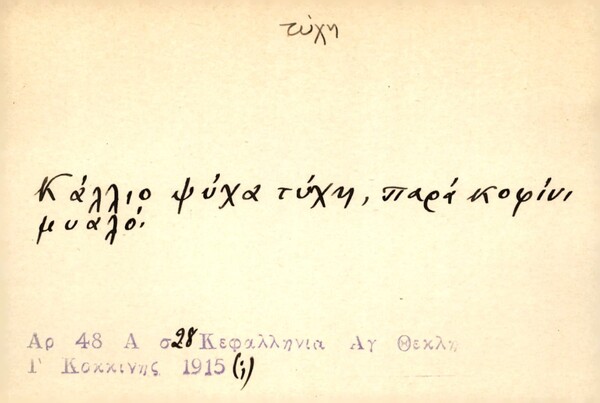 τύχη
Κάλλιο ψύχα τύχη, παρά κοφίνι
μυαλό.
Αρ 48 Α σ 28 Κεφαλληνια Αγ Θεκλη
Γ Κοκκινης 1915 (;)